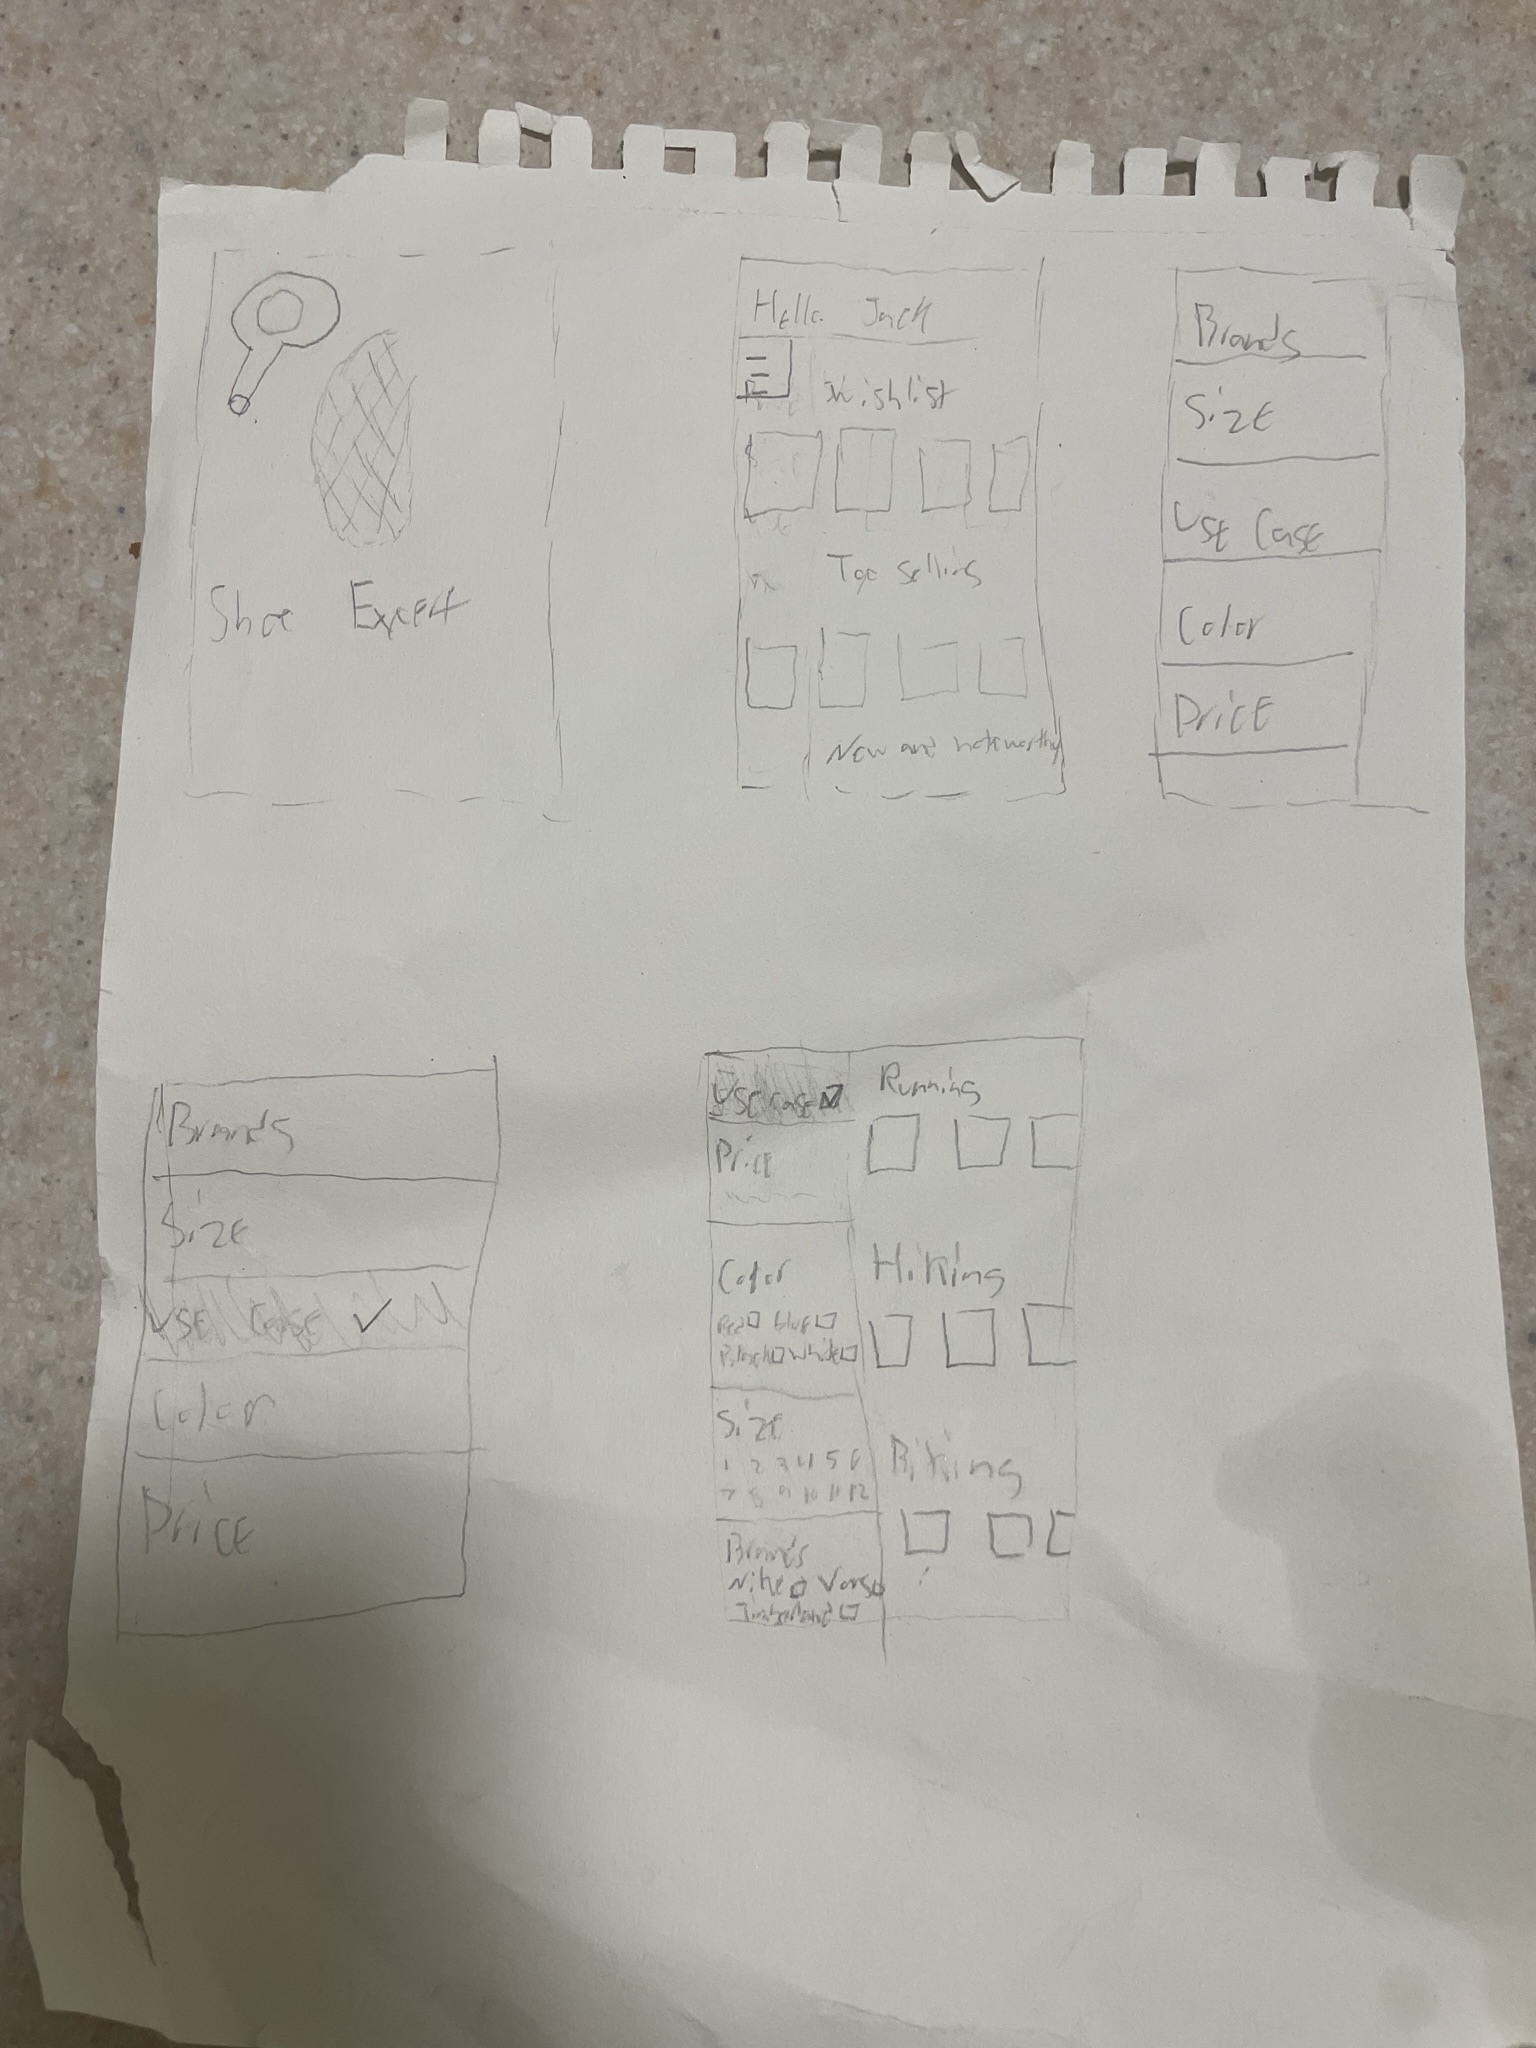 Shoe Expert
Hello Jack
Wishlist
Top selling
New and noteworthy
Brands
Size
Use Case
Color
Price
Brands
Size
Use case ✓
Color
Price
Use case
Price
Color
Red blue
Black white
Size
1 2 3 4 5 6
7 8 9 10 11 12
Brands
Nike Vans
Timberland
Running
Hiking
Biking